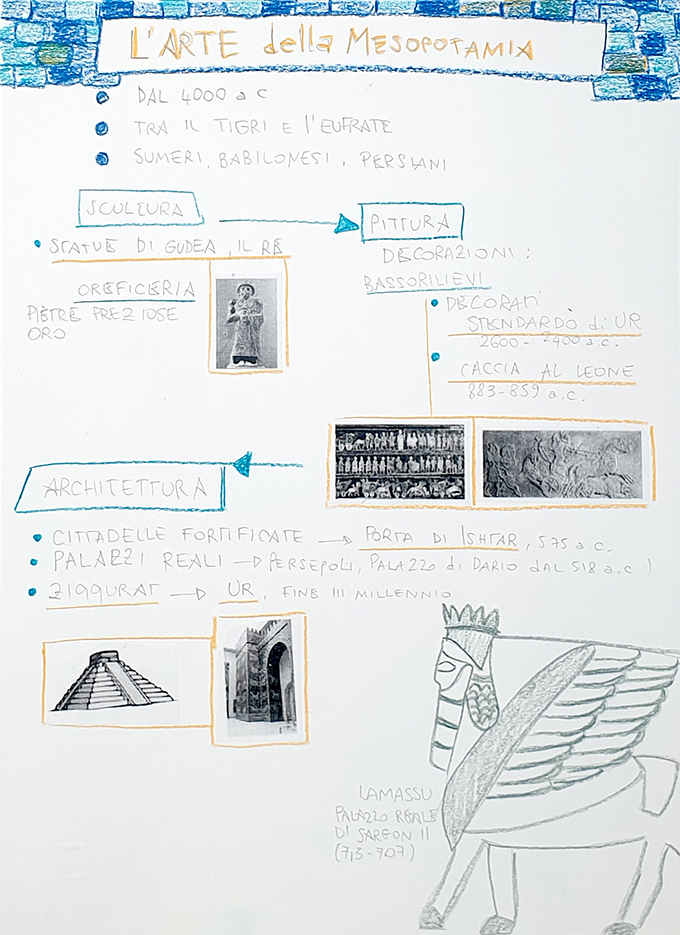 L'ARTE della MESOPOTAMIA
DAL 4000 a c.
TRA IL TIGRI E l'EUFRATE
SUMERI, BABILONESI, PERSIANI
SCULTURA
STATUE DI GUDEA, IL RE
OREFICERIA
PIETRE PREZIOSE
ORO
PITTURA
DECORAZIONI:
BASSORILIEVI
DECORATI
STENDARDO di UR
2600 - 2400 a.c.
CACCIA AL LEONE
883-859 a.c.
ARCHITETTURA
CITTADELLE FORTIFICATE → PORTA DI ISHTAR, 575 a.c.
PALAZZI REALI → PERSEPOLI, PALAZZO di DARIO DAL 518 a.c)
ZIGGURAT → UR, FINE III MILLENNIO
LAMASSU
PALAZZO REALE
DI SARGON II
(713-707)